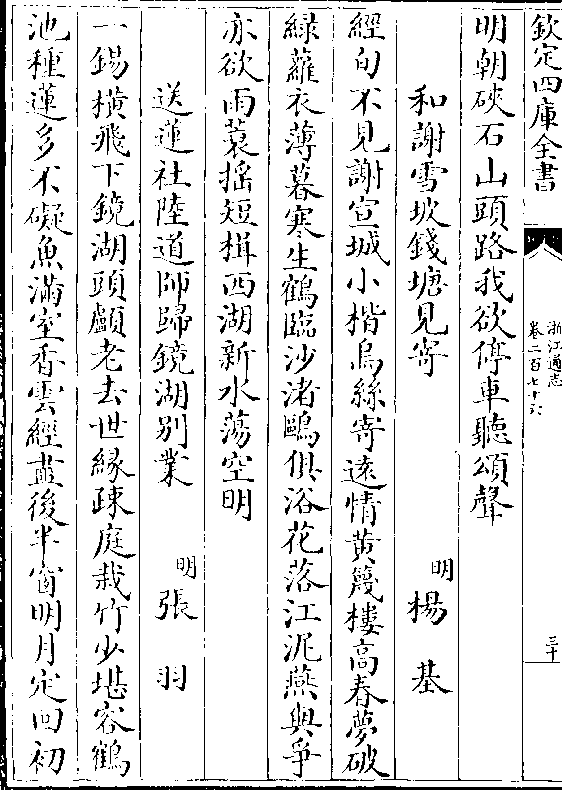 欽定四庫全書
浙江通志
卷二百七十六
三十
明朝硤石山頭路我欲停車聽頌聲
和謝雪坡錢塘見寄
明 楊基
經旬不見謝宣城小楷烏絲寄逺情黄篾樓高春夢破
緑蘿衣薄暮寒生鶴臨沙渚鷗俱浴花落江泥燕與爭
亦欲雨蓑揺短楫西湖新水蕩空明
送蓮社陸道師歸鏡湖别業
明 張羽
一錫横飛下鏡湖頭顱老去世縁踈庭栽竹少堪容鶴
池種蓮多不礙魚滿室香雲經盡後半窗明月定回初